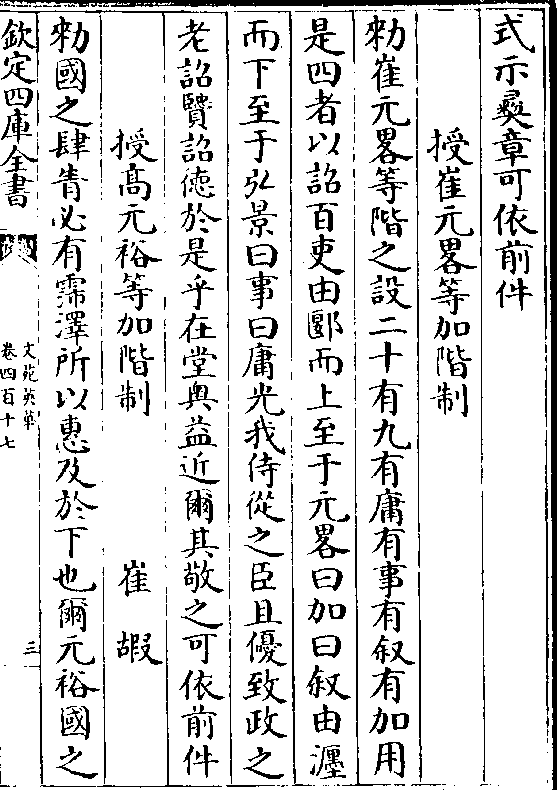 式示彛章可依前件
授崔元畧等加階制
勑崔元畧等階之設二十有九有庸有事有叙有加用
是四者以詔百吏由郾而上至于元畧曰加曰叙由瀍
而下至于弘景曰事曰庸光我侍從之臣且優致政之
老詔賢詔德於是乎在堂與益近爾其敬之可依前件
授高元裕等加階制 崔嘏
勑國之肆眚必有霈澤所以惠及於下也爾元裕國之
欽定四庫全書
文苑英華
卷四百十七
三